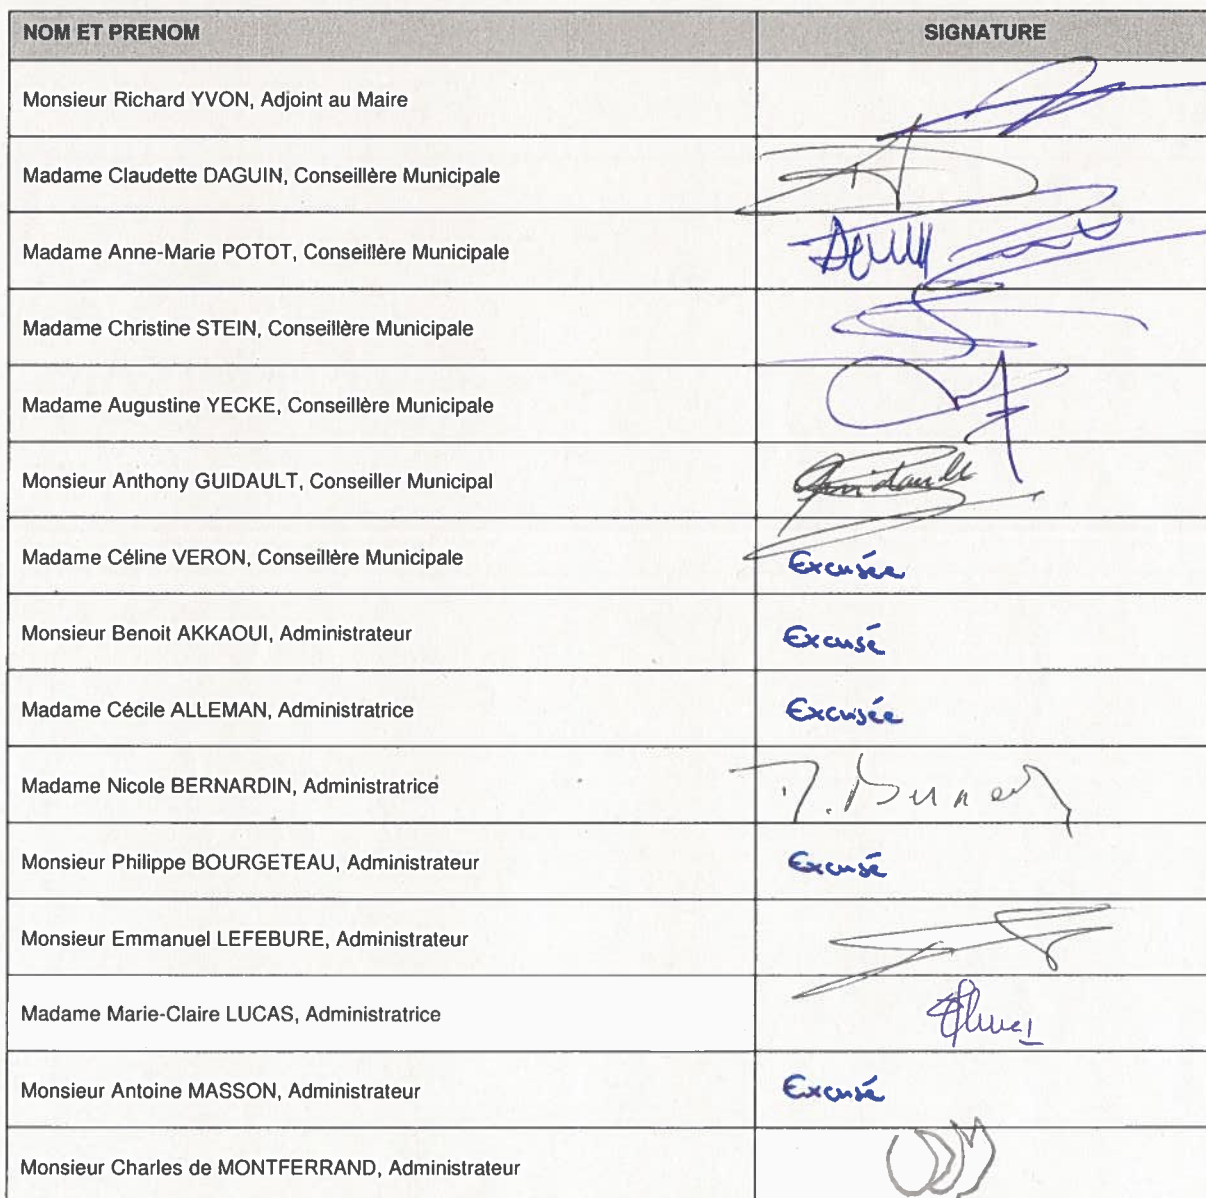 NOM ET PRENOM SIGNATURE
Monsieur Richard YVON, Adjoint au Maire
Madame Claudette DAGUIN, Conseillère Municipale
Madame Anne-Marie POTOT, Conseillère Municipale
Madame Christine STEIN, Conseillère Municipale
Madame Augustine YECKE, Conseillère Municipale
Monsieur Anthony GUIDAULT, Conseiller Municipal Guidault
Madame Céline VERON, Conseillère Municipale Excusée
Monsieur Benoit AKKAOUI, Administrateur Excusé
Madame Cécile ALLEMAN, Administratrice Excusée
Madame Nicole BERNARDIN, Administratrice
Monsieur Philippe BOURGETEAU, Administrateur Excusé
Monsieur Emmanuel LEFEBURE, Administrateur
Madame Marie-Claire LUCAS, Administratrice
Monsieur Antoine MASSON, Administrateur Excusé
Monsieur Charles de MONTFERRAND, Administrateur